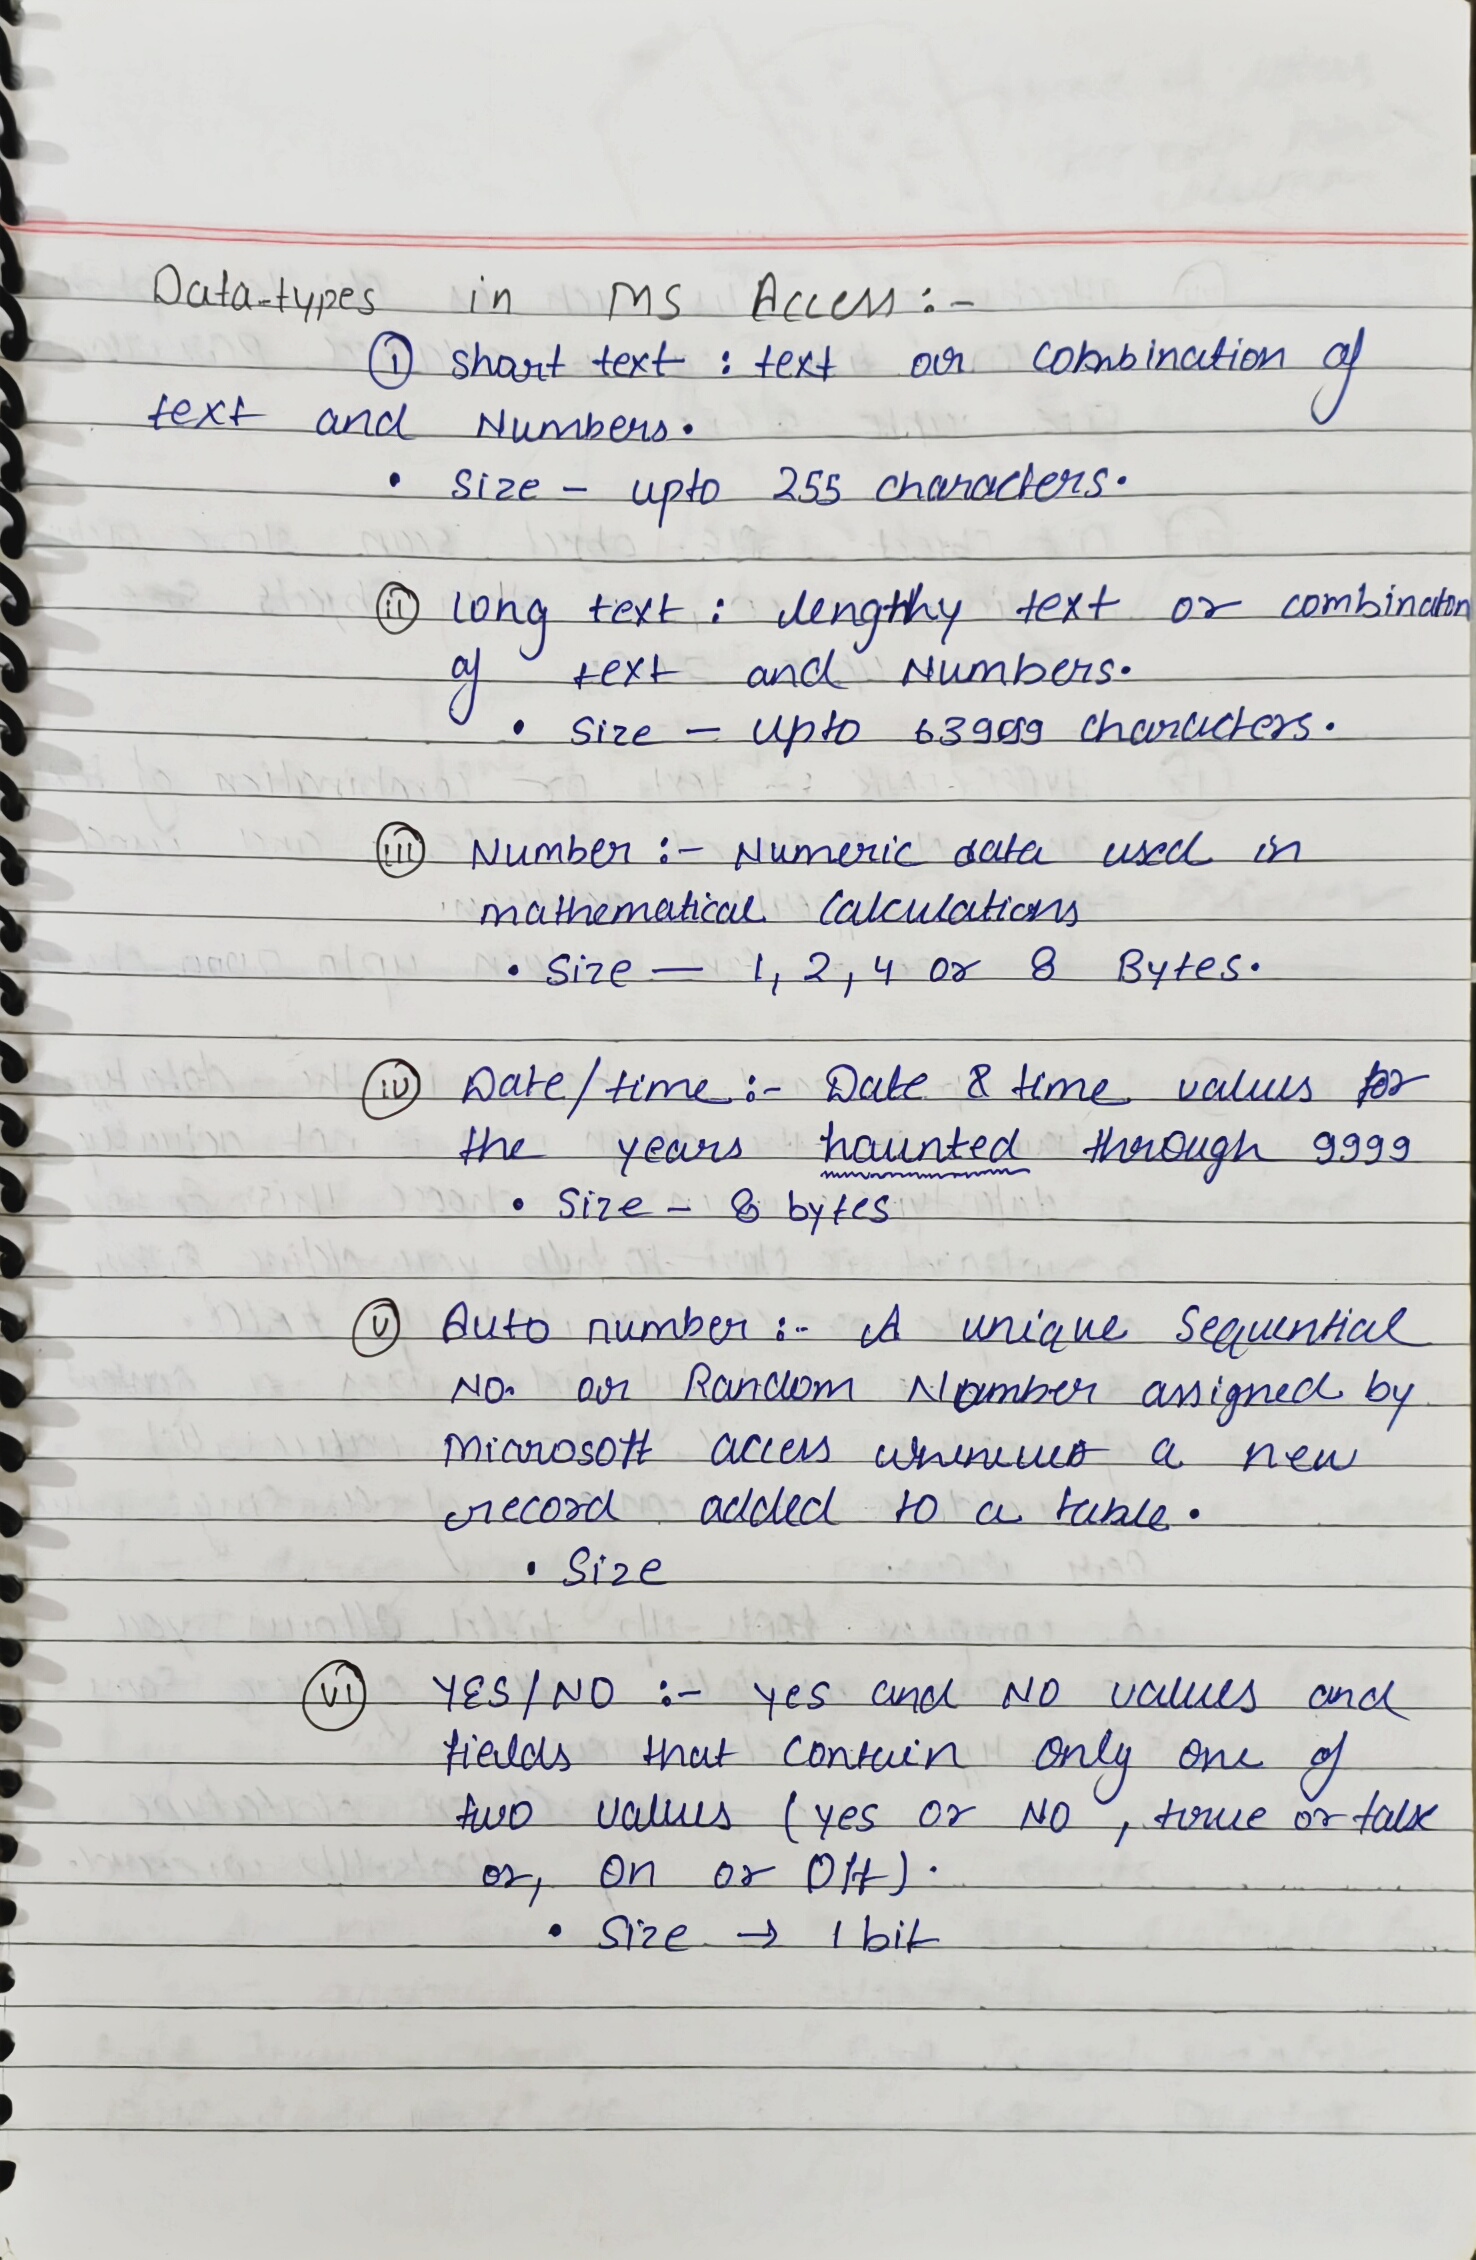 Data-types in MS Access:-
(i) short text : text or combination of
text and Numbers.
• Size - upto 255 characters.
(ii) long text : lengthy text or combination
of text and Numbers.
• Size - upto 63999 characters.
(iii) Number :- Numeric data used in
mathematical Calculations
• Size — 1, 2, 4 or 8 Bytes.
(iv) Date/time :- Date & time values for
the years haunted through 9999
• Size - 8 bytes
(v) Auto number :- A unique Sequential
No. or Random Number assigned by
Microsoft access whenever a new
record added to a table.
• Size
(vi) YES/NO :- yes and NO values and
fields that contain only one of
two values (yes or NO, true or false
or, on or Off).
• Size → 1 bit